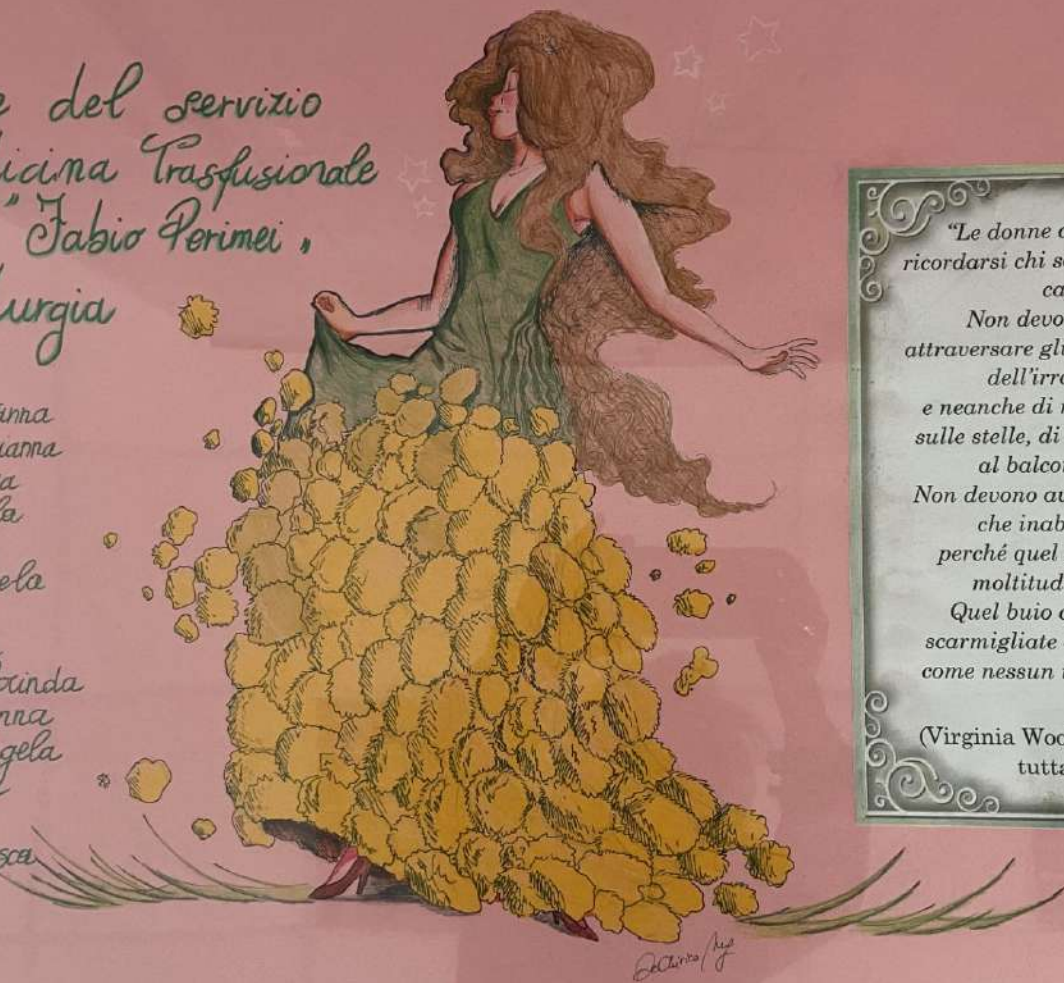 e del servizio
icina Trasfusionale
" Fabio Perimei "
urgia
anna
ianna
a
la
ela
inda
nna
gela
sca
"Le donne
ricordarsi chi s
ca
Non devo
attraversare gl
dell'irr
e neanche di
sulle stelle, di
al balco
Non devono au
che inab
perché quel
moltitud
Quel buio
scarmigliate
come nessun
(Virginia Woo
tutta